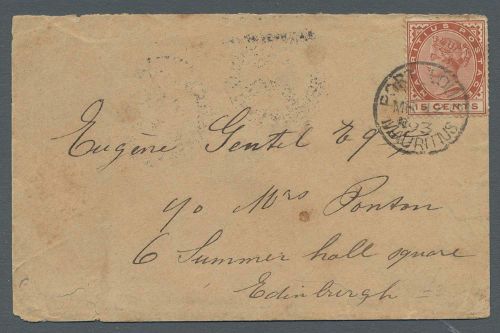 MAURITIUS POSTAGE
15 CENTS
PORT LOUIS
93
MAURITIUS
Eugène Gentel Esq
c/o Mrs Ponton
6 Summer hall square
Edinburgh